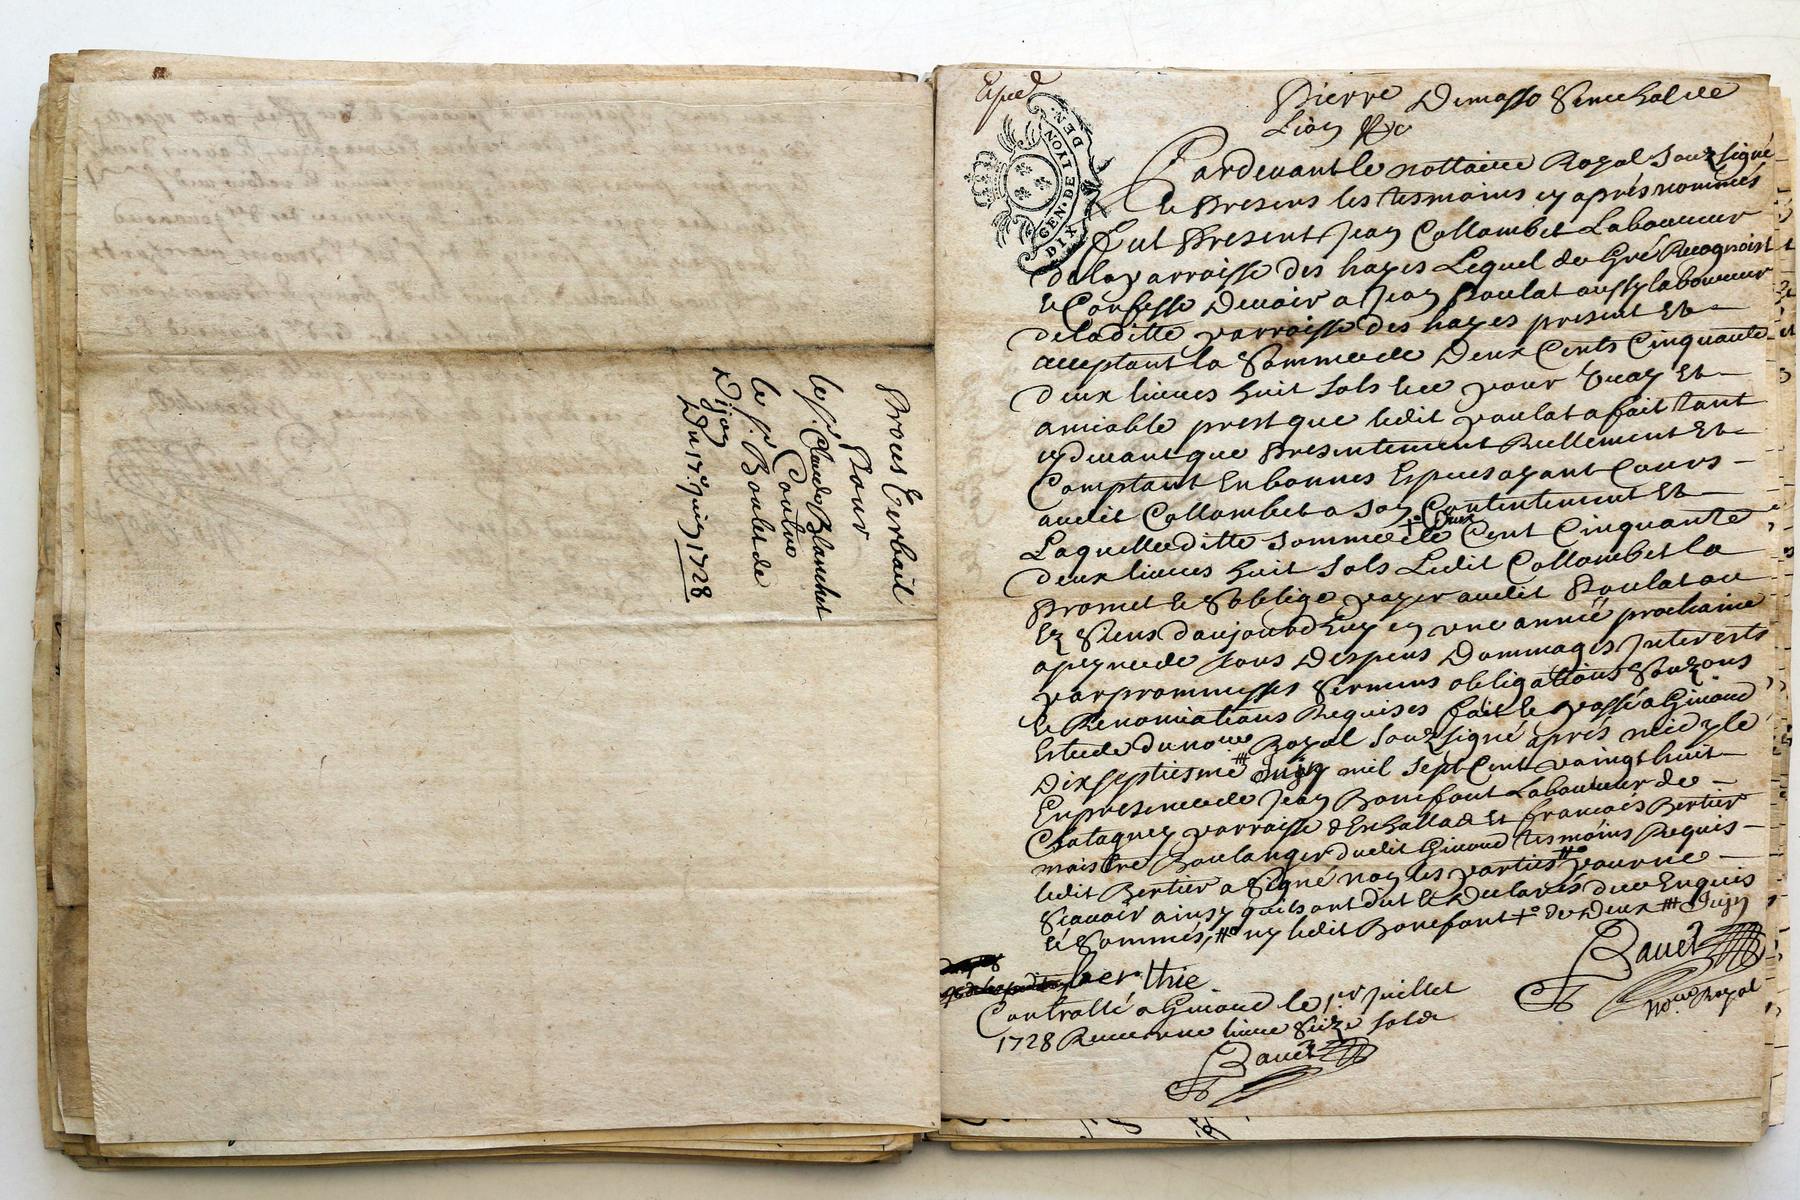 Proces Verbail
Pour
le s.r Claude Blanchet
Contre
le s.r Boulet de
Dijon
Du 17.e juin 1728
Exped
GEN. DE LYON
DIX DEN.
Pierre Demasso Senechal de
Lion &c
Pardevant le nottaire Royal Soubsigné
Et Presens les tesmoins cy aprés nommés
fut Present Jean Collombet Laboureur
de la parroisse des hayes Lequel de Gré Recognoist
Et Confesse Devoir a Jean Poulat aussy laboureur
de laditte parroisse des hayes present Et
acceptant la Somme de Deux Cents Cinquante
deux livres huit sols Et ce pour vray Et
amiable prest que ledit poulat a fait tant
cy devant que Presentement Reellement Et
Comptant En bonnes Especes ayant Cours
audit Collombet a son Contentement Et
Laquelle ditte Somme de +o Deux Cent Cinquante
deux livres huit sols Ledit Collombet la
Promet Et S'oblige payer audit Poulat ou
Ez Siens d'aujourd'huy en une année prochaine
a peyne de tous Despens Dommages Interests
par prommesses Sermens obligations Soubz.ons
Et Renonciations Requises fait Et passé a Givord
Estude du no.re Royal Soubsigné aprés midy le
Dix septiesme # Juin mil Sept Cent vaingt huit
En presence de Jean Bonefont Laboureur de
parroisse d'Echallas Et francois Bertier
maistre Boulanger dudit Givord tesmoins Requis
ledit Bertier a Signé non les parties #o pour ne
Scavoir ainsy quils ont dit Et Declarés de ce Enquis
Et Sommés, #o ny ledit Bonefont +o de Deux # Juin
berthie
Bauet
no.re Royal
Controllé a Givord le 1.er Juillet
1728 Receu une livre Seize sols
Bauet